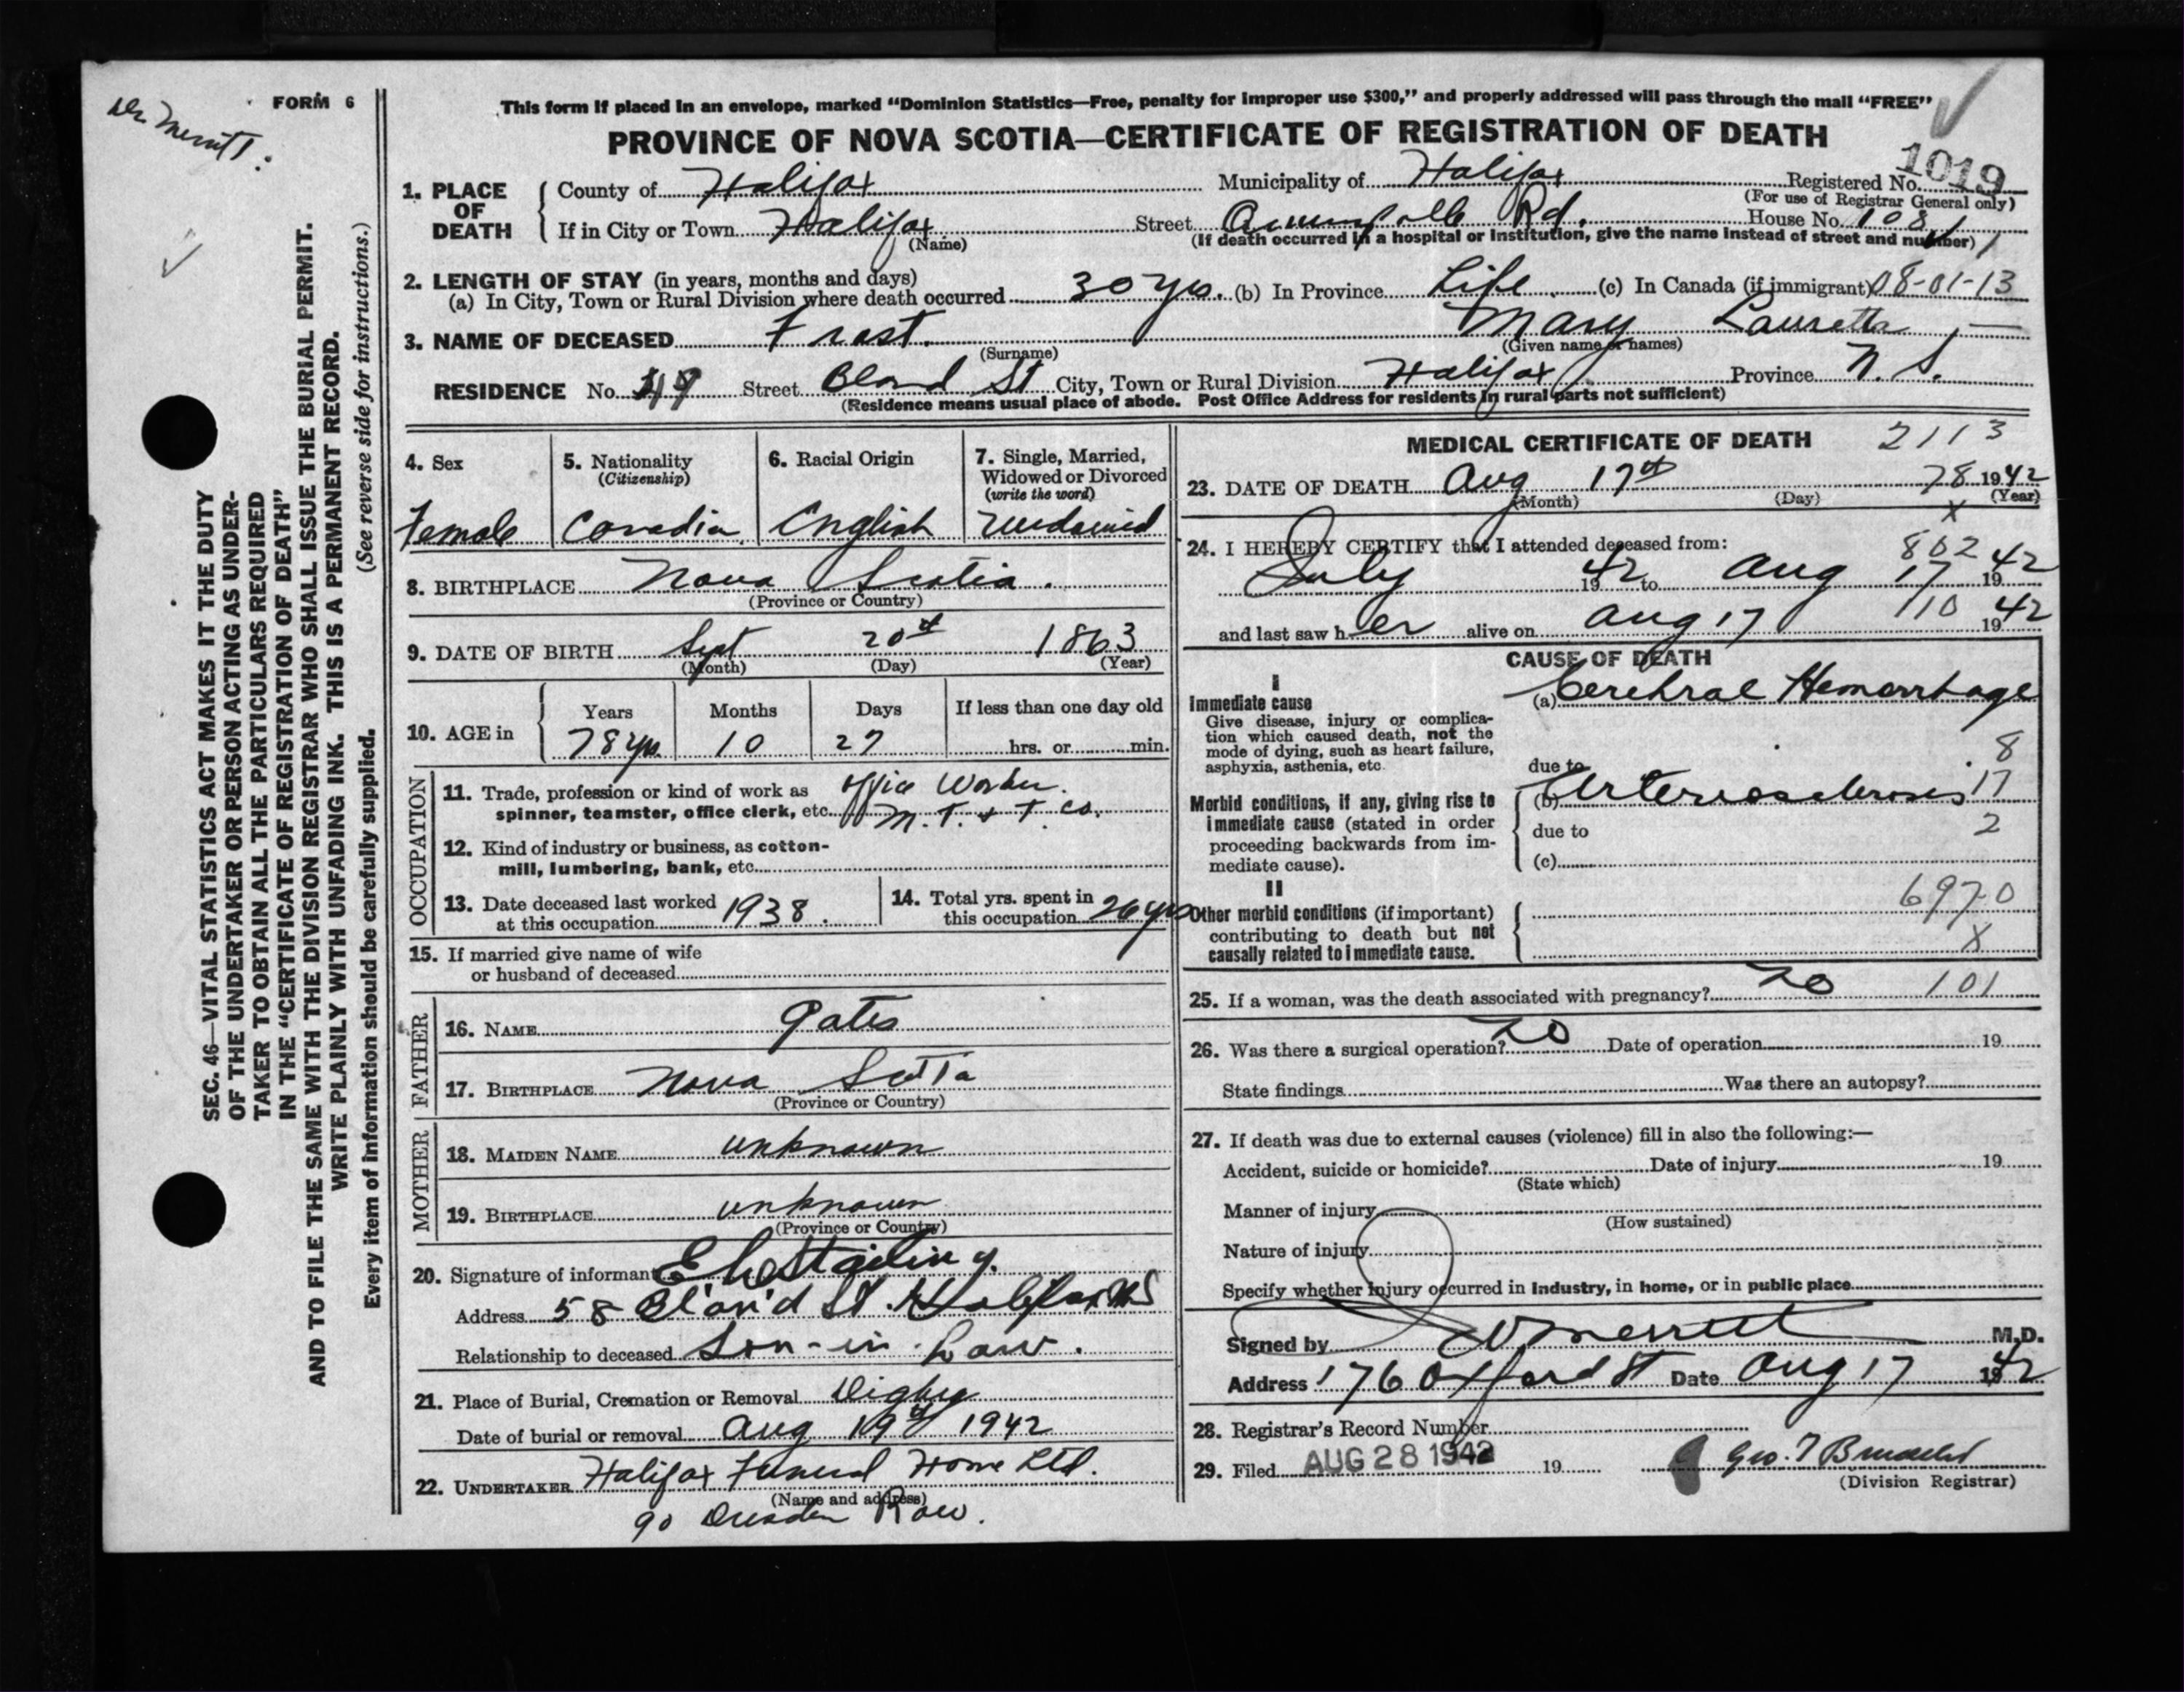 Dr Merritt.
FORM 6
This form if placed in an envelope, marked "Dominion Statistics—Free, penalty for improper use $300," and properly addressed will pass through the mail "FREE"
PROVINCE OF NOVA SCOTIA—CERTIFICATE OF REGISTRATION OF DEATH
1019
1. PLACE OF DEATH
County of Halifax Municipality of Halifax Registered No.
(For use of Registrar General only)
If in City or Town Halifax Street Rd. House No. 108
(Name) (If death occurred in a hospital or institution, give the name instead of street and number)
2. LENGTH OF STAY (in years, months and days)
(a) In City, Town or Rural Division where death occurred 30 yrs. (b) In Province Life (c) In Canada (if immigrant) 08-01-13
3. NAME OF DECEASED Frost. Mary Lauretta
(Surname) (Given name or names)
RESIDENCE No. Street Bland St City, Town or Rural Division Halifax Province N. S.
(Residence means usual place of abode. Post Office Address for residents in rural parts not sufficient)
4. Sex
Female
5. Nationality
(Citizenship)
Canadian
6. Racial Origin
English
7. Single, Married,
Widowed or Divorced
(write the word)
8. BIRTHPLACE Nova Scotia.
(Province or Country)
9. DATE OF BIRTH Sept 20th 1863
(Month) (Day) (Year)
10. AGE in
Years Months Days If less than one day old
78 yrs 10 27 hrs. or min.
OCCUPATION
11. Trade, profession or kind of work as Office Worker.
spinner, teamster, office clerk, etc. M. T. & T. Co.
12. Kind of industry or business, as cotton-
mill, lumbering, bank, etc.
13. Date deceased last worked
at this occupation 1938.
14. Total yrs. spent in
this occupation 26 yrs
15. If married give name of wife
or husband of deceased
FATHER
16. NAME Gates
17. BIRTHPLACE Nova Scotia
(Province or Country)
MOTHER
18. MAIDEN NAME unknown
19. BIRTHPLACE unknown
(Province or Country)
20. Signature of informant
Address 58 Bland St. Halifax NS
Relationship to deceased Son-in-Law.
21. Place of Burial, Cremation or Removal Digby
Date of burial or removal Aug 19th 1942
22. UNDERTAKER Halifax Funeral Home Ltd.
(Name and address)
90 Dresden Row.
MEDICAL CERTIFICATE OF DEATH 2113
23. DATE OF DEATH Aug 17th 78 1942
(Month) (Day) (Year)
X
24. I HEREBY CERTIFY that I attended deceased from: 802
July 1942 to Aug 17 1942
110
and last saw her alive on Aug 17 1942
CAUSE OF DEATH
I
Immediate cause
Give disease, injury or complica-
tion which caused death, not the
mode of dying, such as heart failure,
asphyxia, asthenia, etc.
(a) Cerebral Hemorrhage
8
due to
Morbid conditions, if any, giving rise to
immediate cause (stated in order
proceeding backwards from im-
mediate cause).
(b) Arteriosclerosis 17
due to 2
(c)
II
Other morbid conditions (if important)
contributing to death but not
causally related to immediate cause.
6970
X
25. If a woman, was the death associated with pregnancy? No 101
26. Was there a surgical operation? No Date of operation 19
State findings Was there an autopsy?
27. If death was due to external causes (violence) fill in also the following:—
Accident, suicide or homicide? Date of injury 19
(State which)
Manner of injury
(How sustained)
Nature of injury
Specify whether injury occurred in industry, in home, or in public place
Signed by Merritt M.D.
Address 176 Oxford St Date Aug 17 1942
28. Registrar's Record Number
29. Filed AUG 28 1942 19 Geo. T
(Division Registrar)
SEC. 46—VITAL STATISTICS ACT MAKES IT THE DUTY
OF THE UNDERTAKER OR PERSON ACTING AS UNDER-
TAKER TO OBTAIN ALL THE PARTICULARS REQUIRED
IN THE "CERTIFICATE OF REGISTRATION OF DEATH"
AND TO FILE THE SAME WITH THE DIVISION REGISTRAR WHO SHALL ISSUE THE BURIAL PERMIT.
WRITE PLAINLY WITH UNFADING INK. THIS IS A PERMANENT RECORD.
(See reverse side for instructions.)
Every item of information should be carefully supplied.